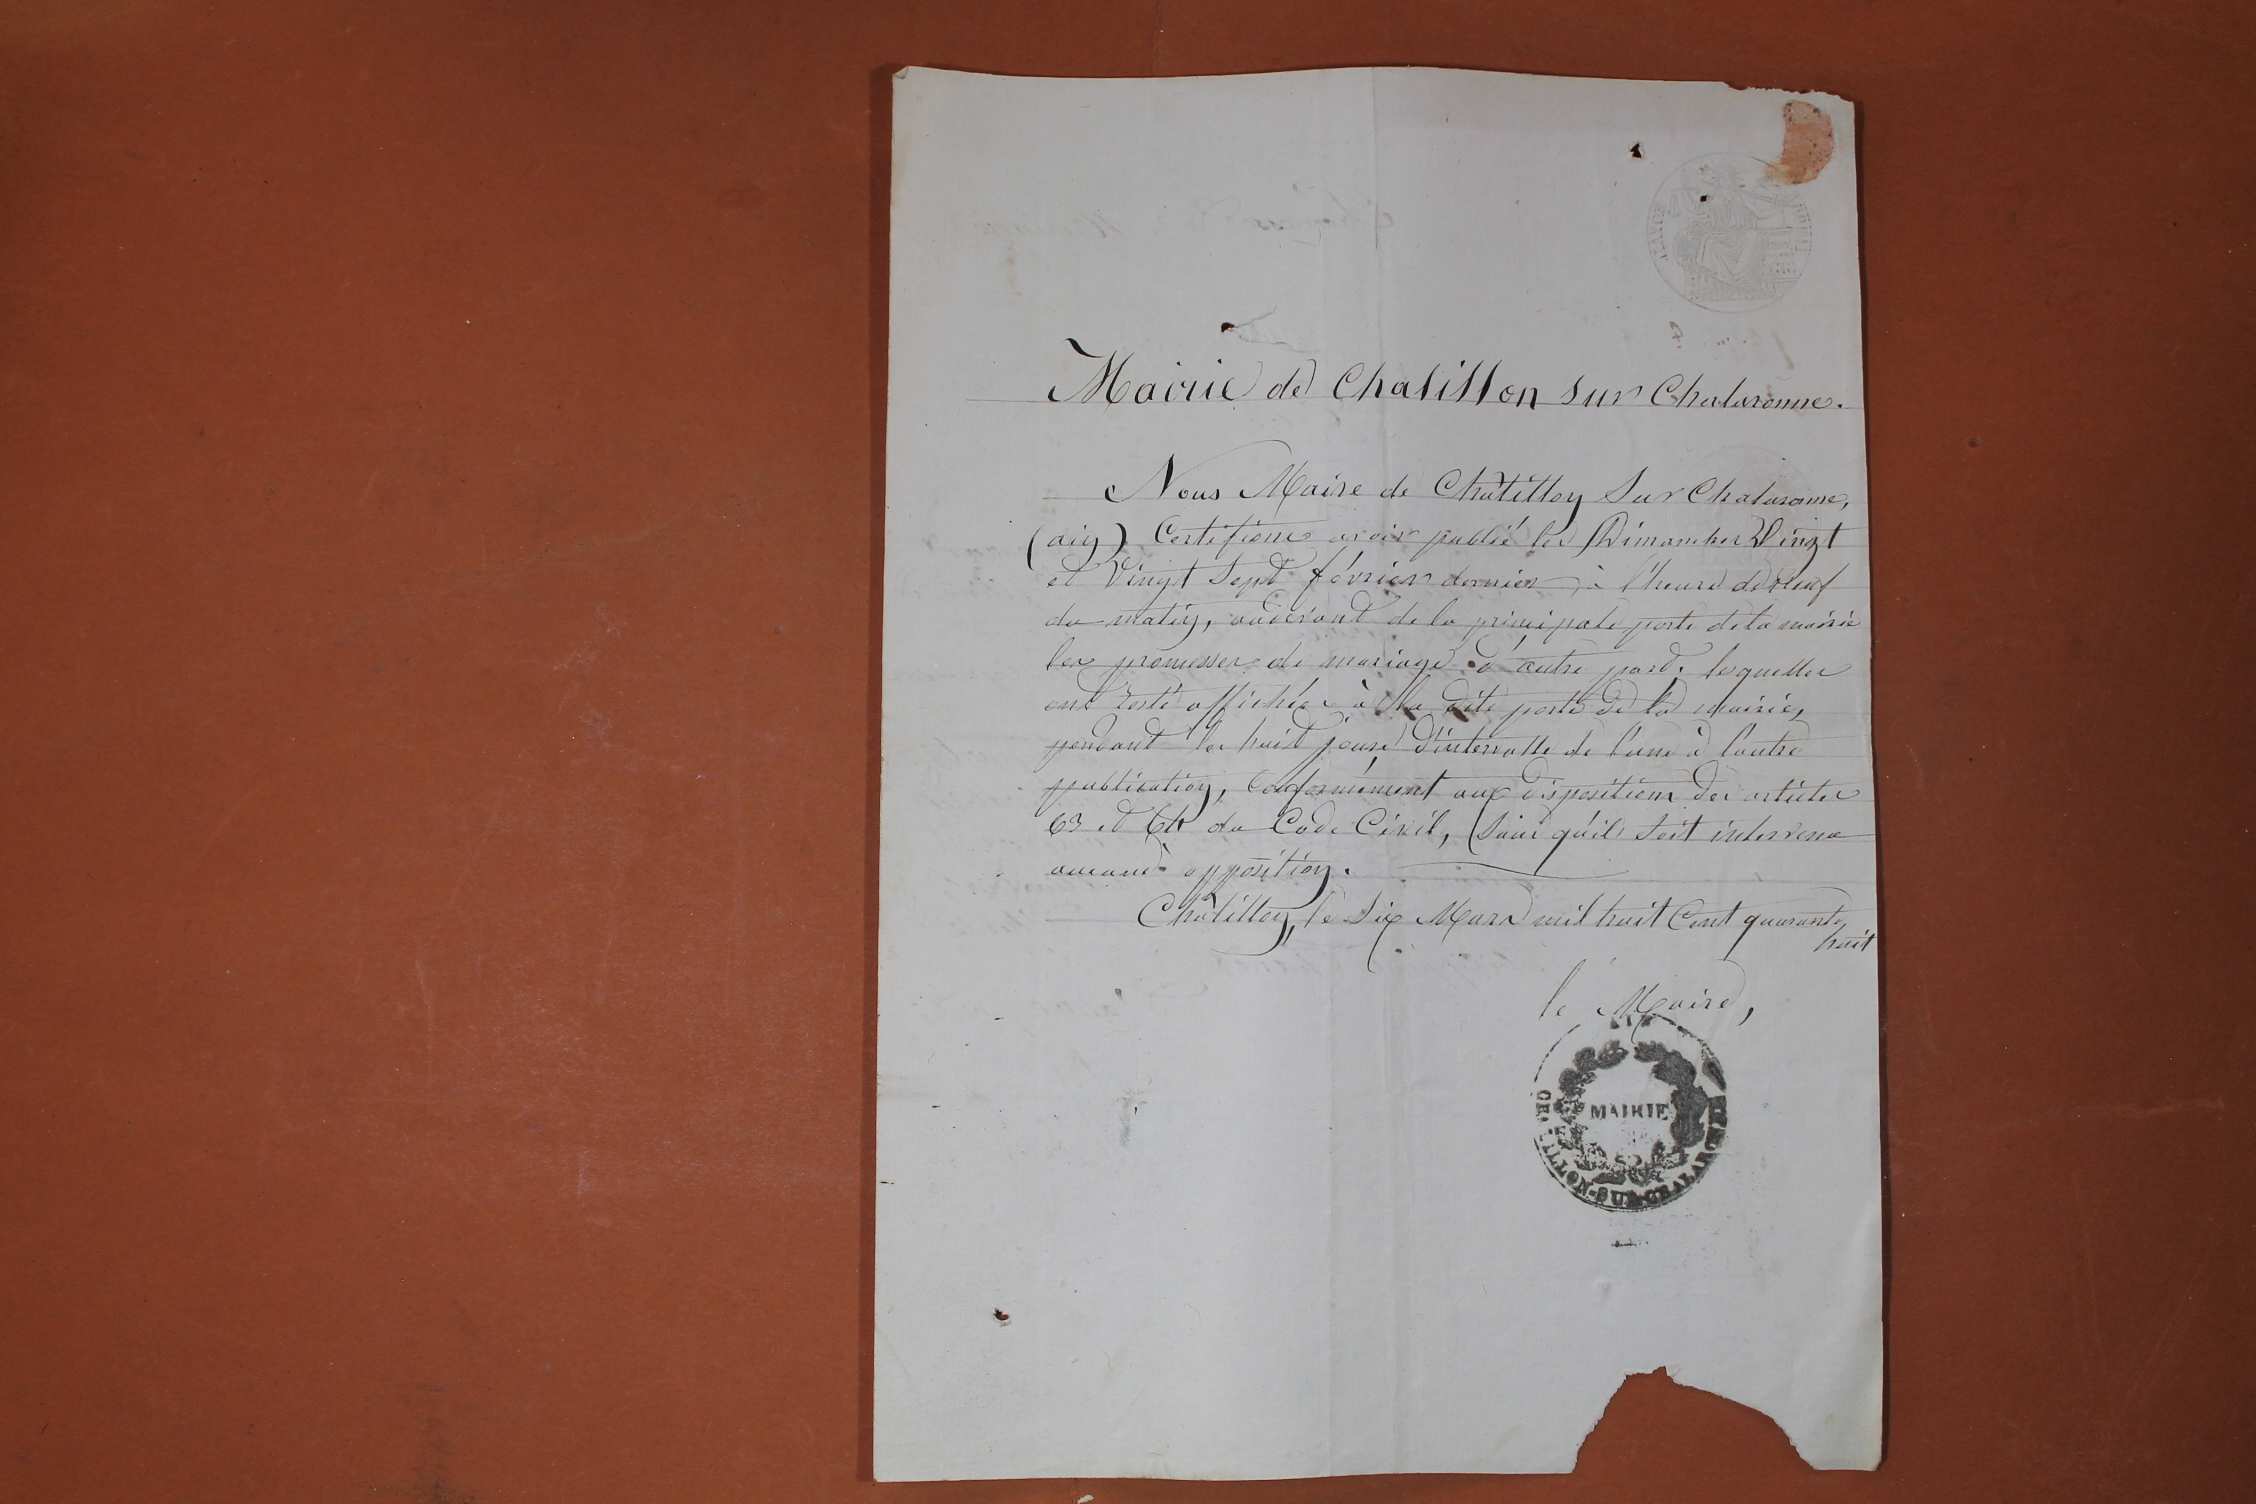 Mairie de Chatillon sur Chalaronne.
Nous Maire de Châtillon sur Chalaronne,
(ain) Certifions avoir publié les Dimanches Vingt
et Vingt Sept février dernier, à l'heure de neuf
du matin, audevant de la principale porte de la mairie
les promesses de mariage d'autre part, lesquelles
ont resté affichées à la dite porte de la mairie,
pendant les huit jours d'intervalle de l'une à l'autre
publication, Conformément aux dispositions des articles
63 et 64 du Code Civil, Sans qu'il soit intervenu
aucune opposition.
Châtillon, le Six Mars mil huit Cent quarante
huit
le Maire,
MAIRIE
CHATILLON-SUR-CHALARONNE